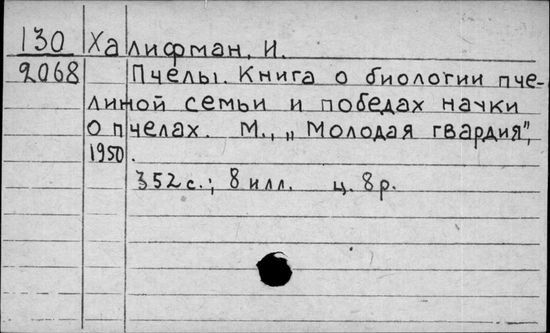 130 Халифман, И.
2068 Пчелы. Книга о биологии пче-
линой семьи и победах науки
о пчелах. М., „Молодая гвардия",
1950.
352 с.; 8 илл. ц. 8 р.